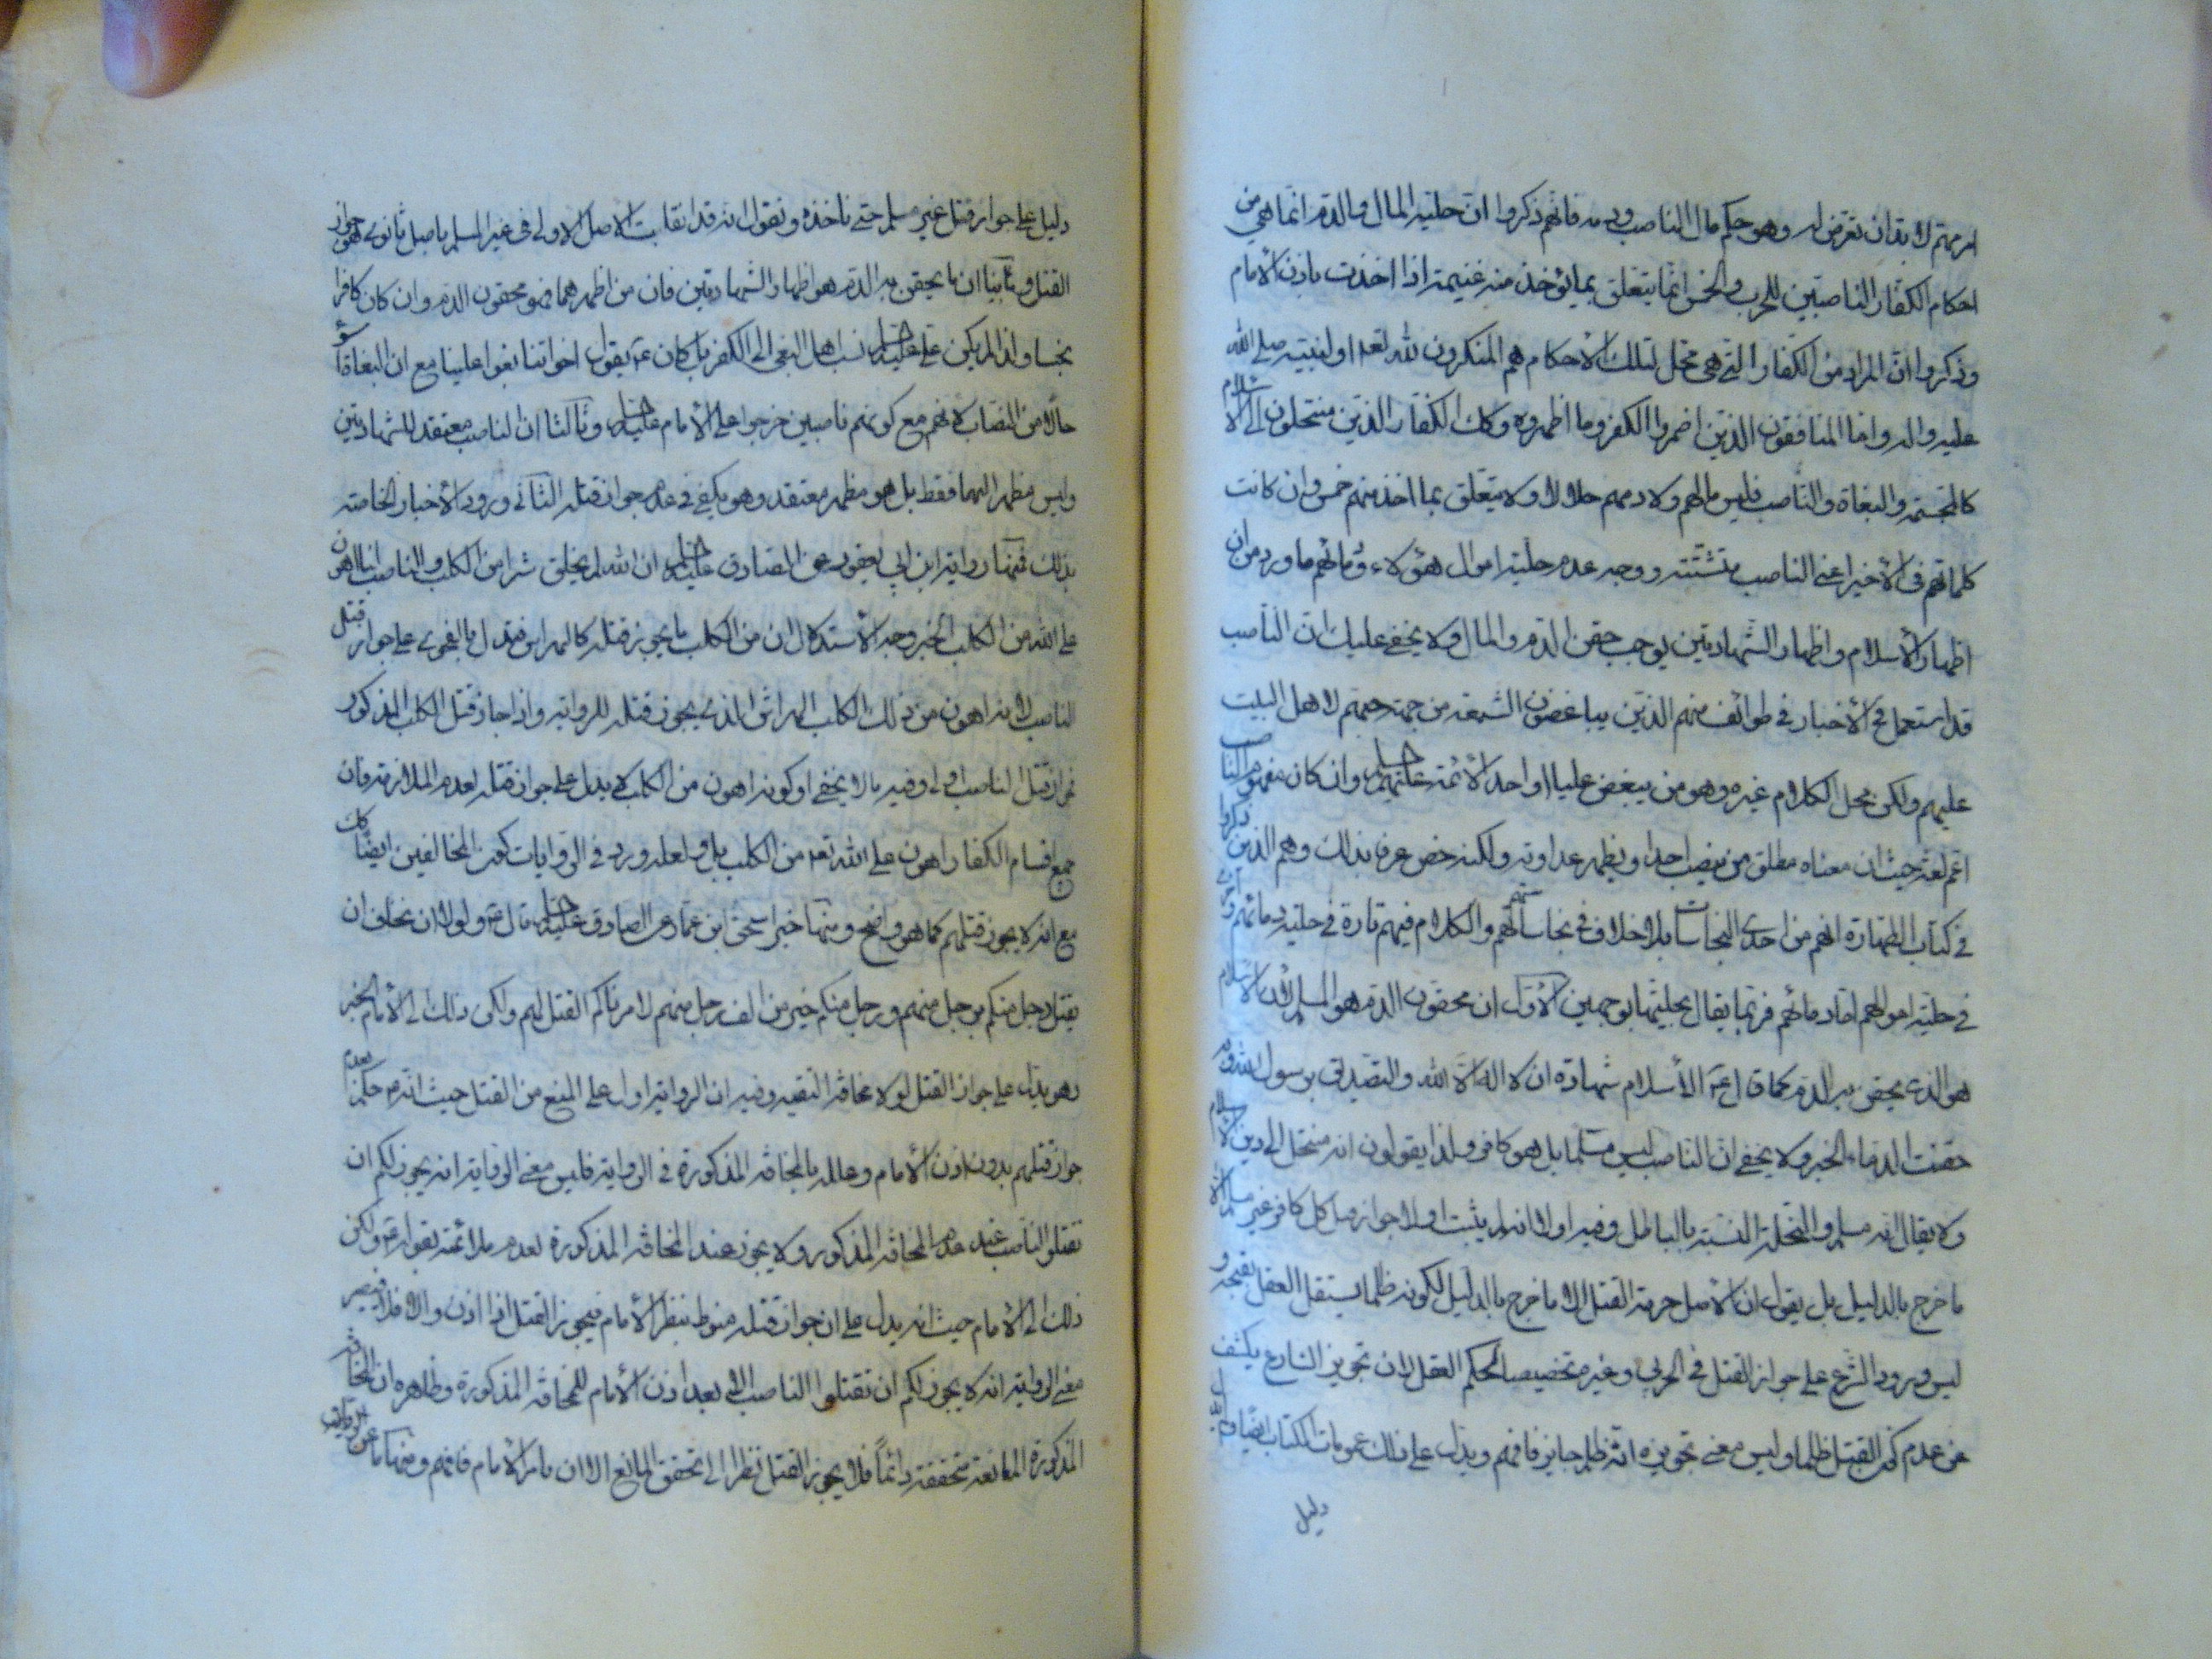 امر مهم لا بد ان نتعرض له وهو حكم مال الناصب ودمه فانهم ذكروا ان حلية المال والدم انما هي من
احكام الكفار الناصبين للحرب والخمس انما يتعلق بما يؤخذ منه غنيمة اذا اخذت باذن الامام
وذكروا ان المراد من الكفار التي هي محل لتلك الاحكام هم المنكرون لله تعه او لنبيه صلى الله
عليه واله واما المنافقون الذين اضمروا الكفر وما اظهروه وكك الكفار الذين منتحلون الى الاسلام
كالمجسمة والبغاة والناصب فليس مالهم ولا دمهم حلالا ولا يتعلق بما اخذ منهم خمس وان كانت
كلماتهم في الاخير اعني الناصب متشتتة ووجه عدم حلية اموال هؤلاء ودمائهم ما ورد من ان
اظهار الاسلام واظهار الشهادتين يوجب حقن الدم والمال ولا يخفى عليك ان الناصب
قد استعمل في الاخبار في طوائف منهم الذين يباغضون الشيعة من جهة حبهم لاهل البيت
عليهم ولكن محل الكلام غيره وهو من يبغض عليا او احد الائمة عليهم السلام وان كان مفهوم الناصب
اعم لغة حيث ان معناه مطلق من يغضب احدا ويظهر عداوته ولكنه خص عرفا بذلك وهم الذين ذكروا
في كتاب الطهارة انهم من احدى النجاسات بلا خلاف في نجاستهم والكلام فيهم تارة في حلية دمائهم واخرى
في حلية اموالهم اما دمائهم فربما يقال بحليتها بوجهين الاول ان محقون الدم هو المسلم لان الاسلام
هو الذي يحقن به الدم كما قال ع الاسلام شهادة ان لا اله الا الله والتصديق برسول الله وبه
حقنت الدماء الخبر ولا يخفى ان الناصب ليس مسلما بل هو كافر ولذا يقولون انه منتحل الى دين الاسلام
ولا يقال انه مسلم والنحلة النسبة بالباطل وفيه اولا انه لم يثبت اولا جواز قتل كل كافر غير مسلم الا
ما خرج بالدليل بل يقول ان الاصل حرمة القتل الا ما خرج بالدليل لكونه ظلما يستقل العقل بقبحه و
ليس ورود الشرع على جواز القتل في الحربي وغيره تخصيصا لحكم العقل لان تجويز الشارع يكشف
عن عدم كون القتل ظلما وليس معنى تجويزه انه ظلم جايز فافهم ويدل على ذلك عمومات الكتاب ايضا
دليل
دليل على جواز قتل غير مسلم حتى ناخذه ونقول انه قد انقلب الاصل الاولي في غير المسلم باصل ثانوي هو جواز
القتل وثانيا ان ما يحقن به الدم هو اظهار الشهادتين فان من اظهرهما فهو محقون الدم وان كان كافرا
نجسا ولذا لم يكن علي عليه السلام نسب اهل البغي الى الكفر بل كان ع يقول اخواننا بغوا علينا مع ان البغاة اسوء
حالا من النصاب لانهم مع كونهم ناصبين خرجوا على الامام عليه السلام وثالثا ان الناصب معتقد للشهادتين
وليس مظهرا لهما فقط بل هو مظهر معتقد وهو يكفي في عدم جواز قتله الثاني ورود الاخبار الخاصة
بذلك فمنها رواية ابن ابي يعفور عن الصادق عليه السلام ان الله لم يخلق شرا من الكلب والناصب لنا اهون
على الله من الكلب الخبر وجه الاستدلال ان من الكلب ما يجوز قتله كالهراش فيدل بالفحوى على جواز قتل
الناصب لانه اهون من ذلك الكلب الهراش الذي يجوز قتله للرواية واذا جاز قتل الكلب المذكور
جاز قتل الناصب اولى وفيه ما لا يخفى اذ كونه اهون من الكلب لا يدل على جواز قتله لعدم الملازمة فان
جميع اقسام الكفار اهون على الله تعه من الكلب بل ولعله ورد في الروايات كون المخالفين ايضا كك
مع انه لا يجوز قتلهم كما هو واضح ومنها خبر اسحق ابن عمار عن الصادق عليه السلام قال ع ولولا ان نخاف ان
يقتل رجل منكم برجل منهم ورجل منكم خير من الف رجل منهم لامرناكم القتل لهم ولكن ذلك الى الامام الخبر
وهو يدل على جواز القتل لولا مخافة التقية وفيه ان الرواية اول على المنع من القتل حيث انه ع حكم بعدم
جواز قتلهم بدون اذن الامام وعلله بالمخافة المذكورة في الرواية فليس معنى الرواية انه يجوز لكم ان
تقتلوا الناصب عند عدم المخافة المذكورة ولا يجوز عند المخافة المذكورة لعدم ملائمته بقوله ع ولكن
ذلك الى الامام حيث انه يدل على ان جواز قتله منوط بنظر الامام فيجوز القتل اذا اذن والا فلا فيصير
معنى الرواية انه لا يجوز لكم ان تقتلوا الناصب الى بعد اذن الامام للمخافة المذكورة وظاهره ان المخافة
المذكورة المانعة متحققة دائماً فلا يجوز القتل نظرا الى تحقق المانع الا ان يامر الامام فافهم ومنها ما عن